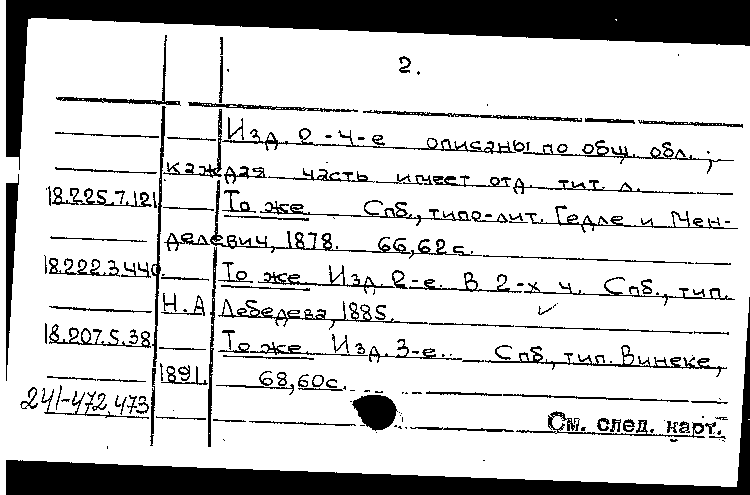 2.
Изд. 2-4-е описаны по общ. обл.;
каждая часть имеет отд. тит. л.
18.225.7.121 То же. Спб., типо-лит. Гедле и Мен-
делевич, 1878. 66,62 с.
18.222.3.440. То же. Изд. 2-е. В 2-х ч. Спб., тип.
Н.А Лебедева, 1885.
18.207.5.38. То же. Изд. 3-е. Спб., тип. Винеке,
1891. 68,60с.
241-472,473
См. след. карт.